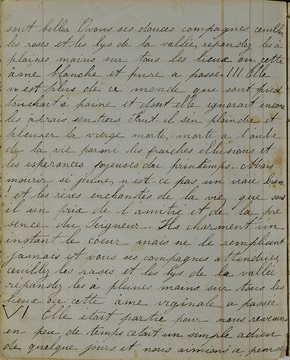 sont belles Ô vous ses douces compagnes cueillez
les roses et les lys de la vallée, répandez les à
pleines mains sur tous les lieux ou cette
âme blanche et pure a passé !!! Elle
n'est plus de ce monde que son pied
touchait à peine et dont elle ignorait encore
les sentiers Faut il s'en plaindre et
pleurer la vierge morte, morte à l'aube
de la vie parmi les fraîches illusions et
les espérances joyeuses du printemps. Mais
mourir si jeune n'est ce pas un vrai bien
! et les rêves enchantés de la vie que sont
il au prix de l'amitié et de la pré
sence du Seigneur. Ils charment un
instant le cœur mais ne le remplissent
jamais et vous ses compagnes attendries
cueillez les roses et les lys de la vallée
répandez les à pleines mains sur tous les
lieux ou cette âme virginale a passée
VI Elle était partie pour nous revenir
en peu de temps c'était un simple adieu
de quelques jours et nous aimions a pens